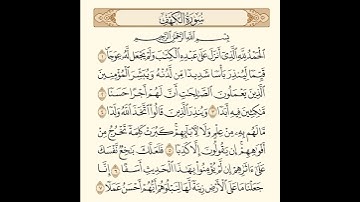 سُورَةُ الكَهْفِ
بِسْمِ اللَّهِ الرَّحْمَٰنِ الرَّحِيمِ
الْحَمْدُ لِلَّهِ الَّذِي أَنزَلَ عَلَىٰ عَبْدِهِ الْكِتَابَ وَلَمْ يَجْعَل لَّهُ عِوَجًا ۜ ١
قَيِّمًا لِّيُنذِرَ بَأْسًا شَدِيدًا مِّن لَّدُنْهُ وَيُبَشِّرَ الْمُؤْمِنِينَ
الَّذِينَ يَعْمَلُونَ الصَّالِحَاتِ أَنَّ لَهُمْ أَجْرًا حَسَنًا ٢
مَّاكِثِينَ فِيهِ أَبَدًا ٣ وَيُنذِرَ الَّذِينَ قَالُوا اتَّخَذَ اللَّهُ وَلَدًا ٤
مَّا لَهُم بِهِ مِنْ عِلْمٍ وَلَا لِآبَائِهِمْ كَبُرَتْ كَلِمَةً تَخْرُجُ مِنْ
أَفْوَاهِهِمْ إِن يَقُولُونَ إِلَّا كَذِبًا ٥ فَلَعَلَّكَ بَاخِعٌ نَّفْسَكَ
عَلَىٰ آثَارِهِمْ إِن لَّمْ يُؤْمِنُوا بِهَٰذَا الْحَدِيثِ أَسَفًا ٦ إِنَّا
جَعَلْنَا مَا عَلَى الْأَرْضِ زِينَةً لَّهَا لِنَبْلُوَهُمْ أَيُّهُمْ أَحْسَنُ عَمَلًا ٧